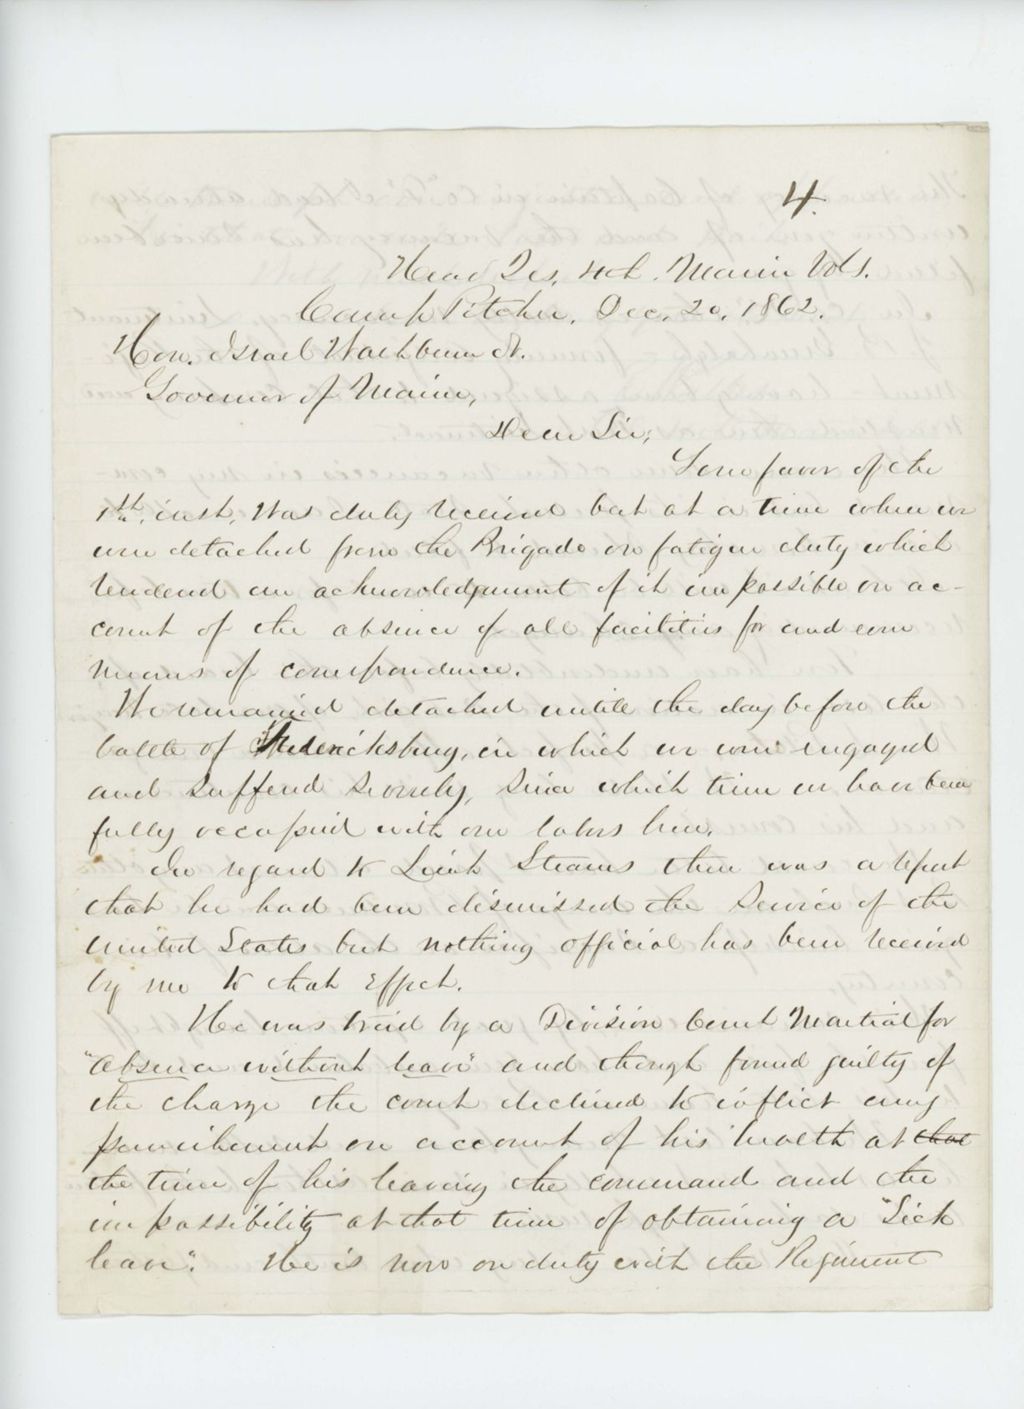 4.
Head Qrs. 4th. Maine Vols.
Camp Pitcher, Dec. 20, 1862.
Hon. Israel Washburn Jr.
Governor of Maine,
Dear Sir;
Your favor of the
1st. inst. was duly received but at a time when we
were detached from the Brigade on fatigue duty which
rendered an acknowledgement of it impossible on ac-
count of the absence of all facilities for and even
means of correspondence.
We remained detached untill the day before the
battle of Fredericksburg, in which we were engaged
and suffered severely, since which time we have been
fully occupied with our labors here.
In regard to Lieut Stearns there was a report
that he had been dismissed the service of the
United States but nothing official has been received
by me to that effect.
He was tried by a Division Court Martial for
"absence without leave" and though found guilty of
the charge the court declined to inflict any
punishment on account of his health at that
the time of his leaving the command and the
impossibility at that time of obtaining a "Sick
leave". He is now on duty with the Regiment